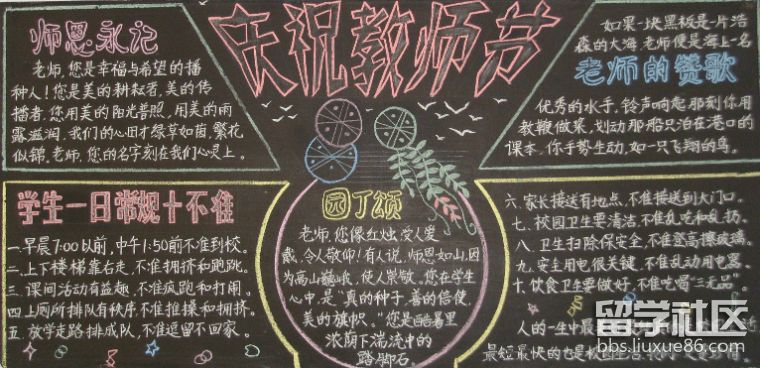 庆祝教师节
师恩永记
老师,您是幸福与希望的播
种人!您是美的耕耘者,美的传
播者,您用美的阳光普照,用美的雨
露滋润,我们的心田才绿草如茵,繁花
似锦,老师,您的名字刻在我们心灵上。
如果一块黑板是一片浩
淼的大海,老师便是海上一名
老师的赞歌
优秀的水手,铃声响起那刻你用
教鞭做桨,划动那船只泊在港口的
课本,你手势生动,如一只飞翔的鸟。
学生一日常规十不准
一、早晨7:00以前,中午1:50前不准到校。
二、上下楼梯靠右走,不准拥挤和跑跳。
三、课间活动有益趣,不准疯跑和打闹。
四、上厕所排队有秩序,不准推搡和拥挤。
五、放学走路排成队,不准逗留不回家。
园丁颂
老师,您像红烛,受人爱
戴,令人敬仰!有人说,师恩如山,因
为高山巍峨,使人崇敬。您在学生
心中,是"真的种子,善的信使,
美的旗帜。"您是酷暑里
浓荫下湍流中的
踏脚石。
六、家长接送有地点,不准接送到大门口。
七、校园卫生要清洁,不准乱吃和乱扔。
八、卫生扫除保安全,不准登高擦玻璃。
九、安全用电很关键,不准乱动用电器。
十、饮食卫生要做好,不准吃喝"三无品"。
人的一生中最
最短最快的也是校园生活
留学社区
bbs.liuxue86.com